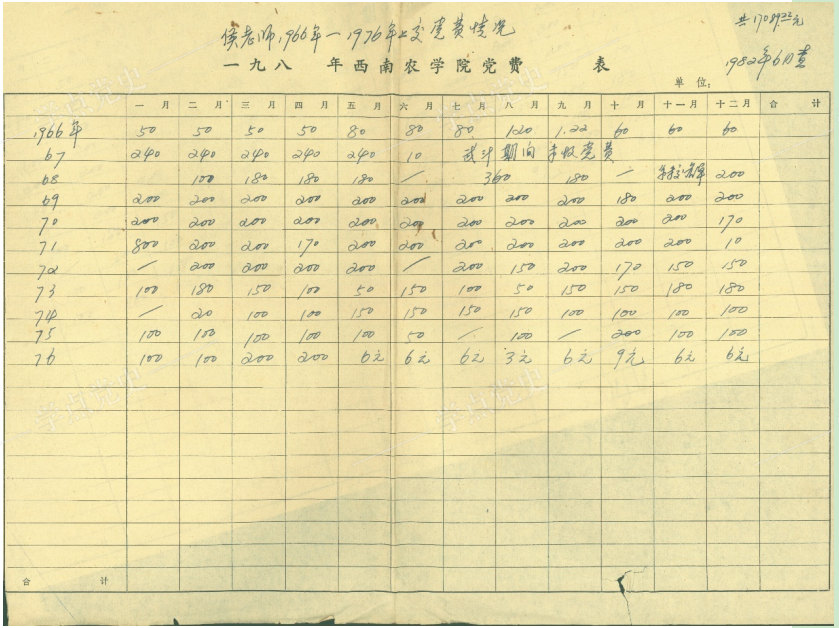 共17089.22元
侯老师1966年—1976年上交党费情况
一九八 年西南农学院党费 表
1982年6月查
单位:
一月 二月 三月 四月 五月 六月 七月 八月 九月 十月 十一月 十二月 合计
1966年 50 50 50 50 80 80 80 120 1.22 60 60 60
67 240 240 240 240 240 10 武斗期间 未收党费
68 100 180 180 180 / 360 180 — 200
69 200 200 200 200 200 200 200 200 200 180 200 200
70 200 200 200 200 200 200 200 200 200 200 200 170
71 800 200 200 170 200 200 200 200 200 200 200 10
72 / 200 200 200 200 / 200 150 200 170 150 150
73 100 180 150 100 50 150 100 50 150 150 180 180
74 / 20 100 100 150 150 150 150 100 100 100 100
75 100 100 100 100 100 50 / 100 / 200 100 100
76 100 100 200 200 6元 6元 6元 3元 6元 9元 6元 6元
合计
学点党史
学点党史
学点党史
学点党史